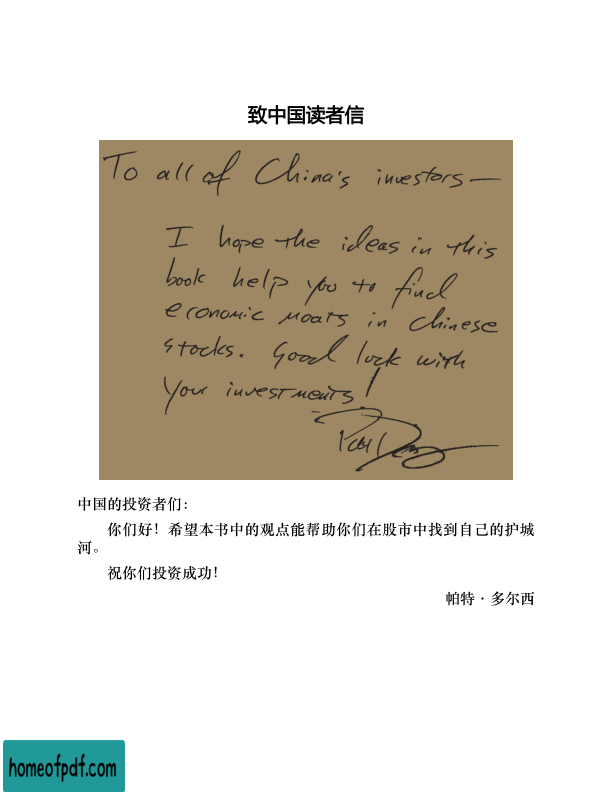 致中国读者信
To all of China's investors—
I hope the ideas in this
book help you to find
economic moats in Chinese
stocks. Good luck with
your investments!
中国的投资者们：
你们好！希望本书中的观点能帮助你们在股市中找到自己的护城
河。
祝你们投资成功！
帕特·多尔西
homeofpdf.com